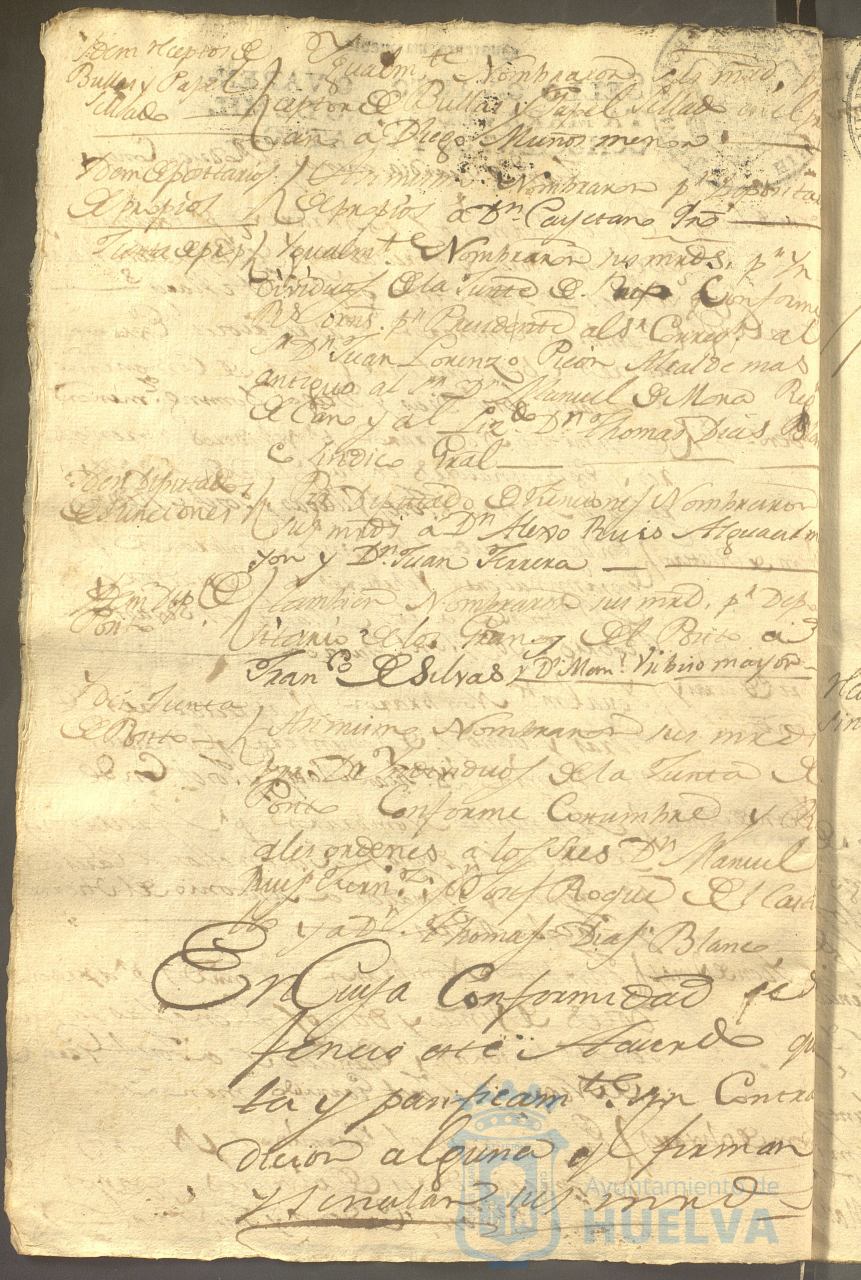 Idem Receptor de
Bullas y Papel
sellado
Igualmte. Nombraron sus mrds, pr
ceptor de Bullas y Papel Sellado en el
año a Diego Muños menor
Idem Depositario
de propios
Asimismo Nombraron pr Deposita
de propios a Dn Cayetano
Junta de prop
Ygualmte. Nombraron sus mrds. pr Yn
dividuos de la Junta de Conforme
Rs. ornS. pr Presidente al Sr Correxr. al
Sr Dn Juan Lorenzo Picon Alcalde mas
antiguo al Sr Dn Manuel de Mora Regr
Decano y al Licdo Dn Thomas Dias Blan
co Sindico Gral
Idem Diputados
de funciones
Pa Diputado de Funciones Nombraron
sus mrds a Dn Alexo Ruis Alguacil m
yor y Dn Juan Ferrera
Idem Depo de
Posito
tambien Nombraron sus mrd, pr Depo
sitario de los Granos del Posito a Dn
Franco de Silvas y Dn Manl. mayor
Idem Junta
de Posito
Asimismo Nombraron sus mrds
por Yndividuos de la Junta de
Posito Conforme Costumbre y R
ales ordenes a los Sres Dn Manuel
Ruis Fernz. Josef Roque del Casti
y a Dn. Thomas Dias Blanco
En Cuya Conformidad se
fenecio este Acuerdo qui
ta y pasificamte. sin Contra
dicion alguna y lo firman
y señalan sus mrds
Ayuntamiento de
HUELVA